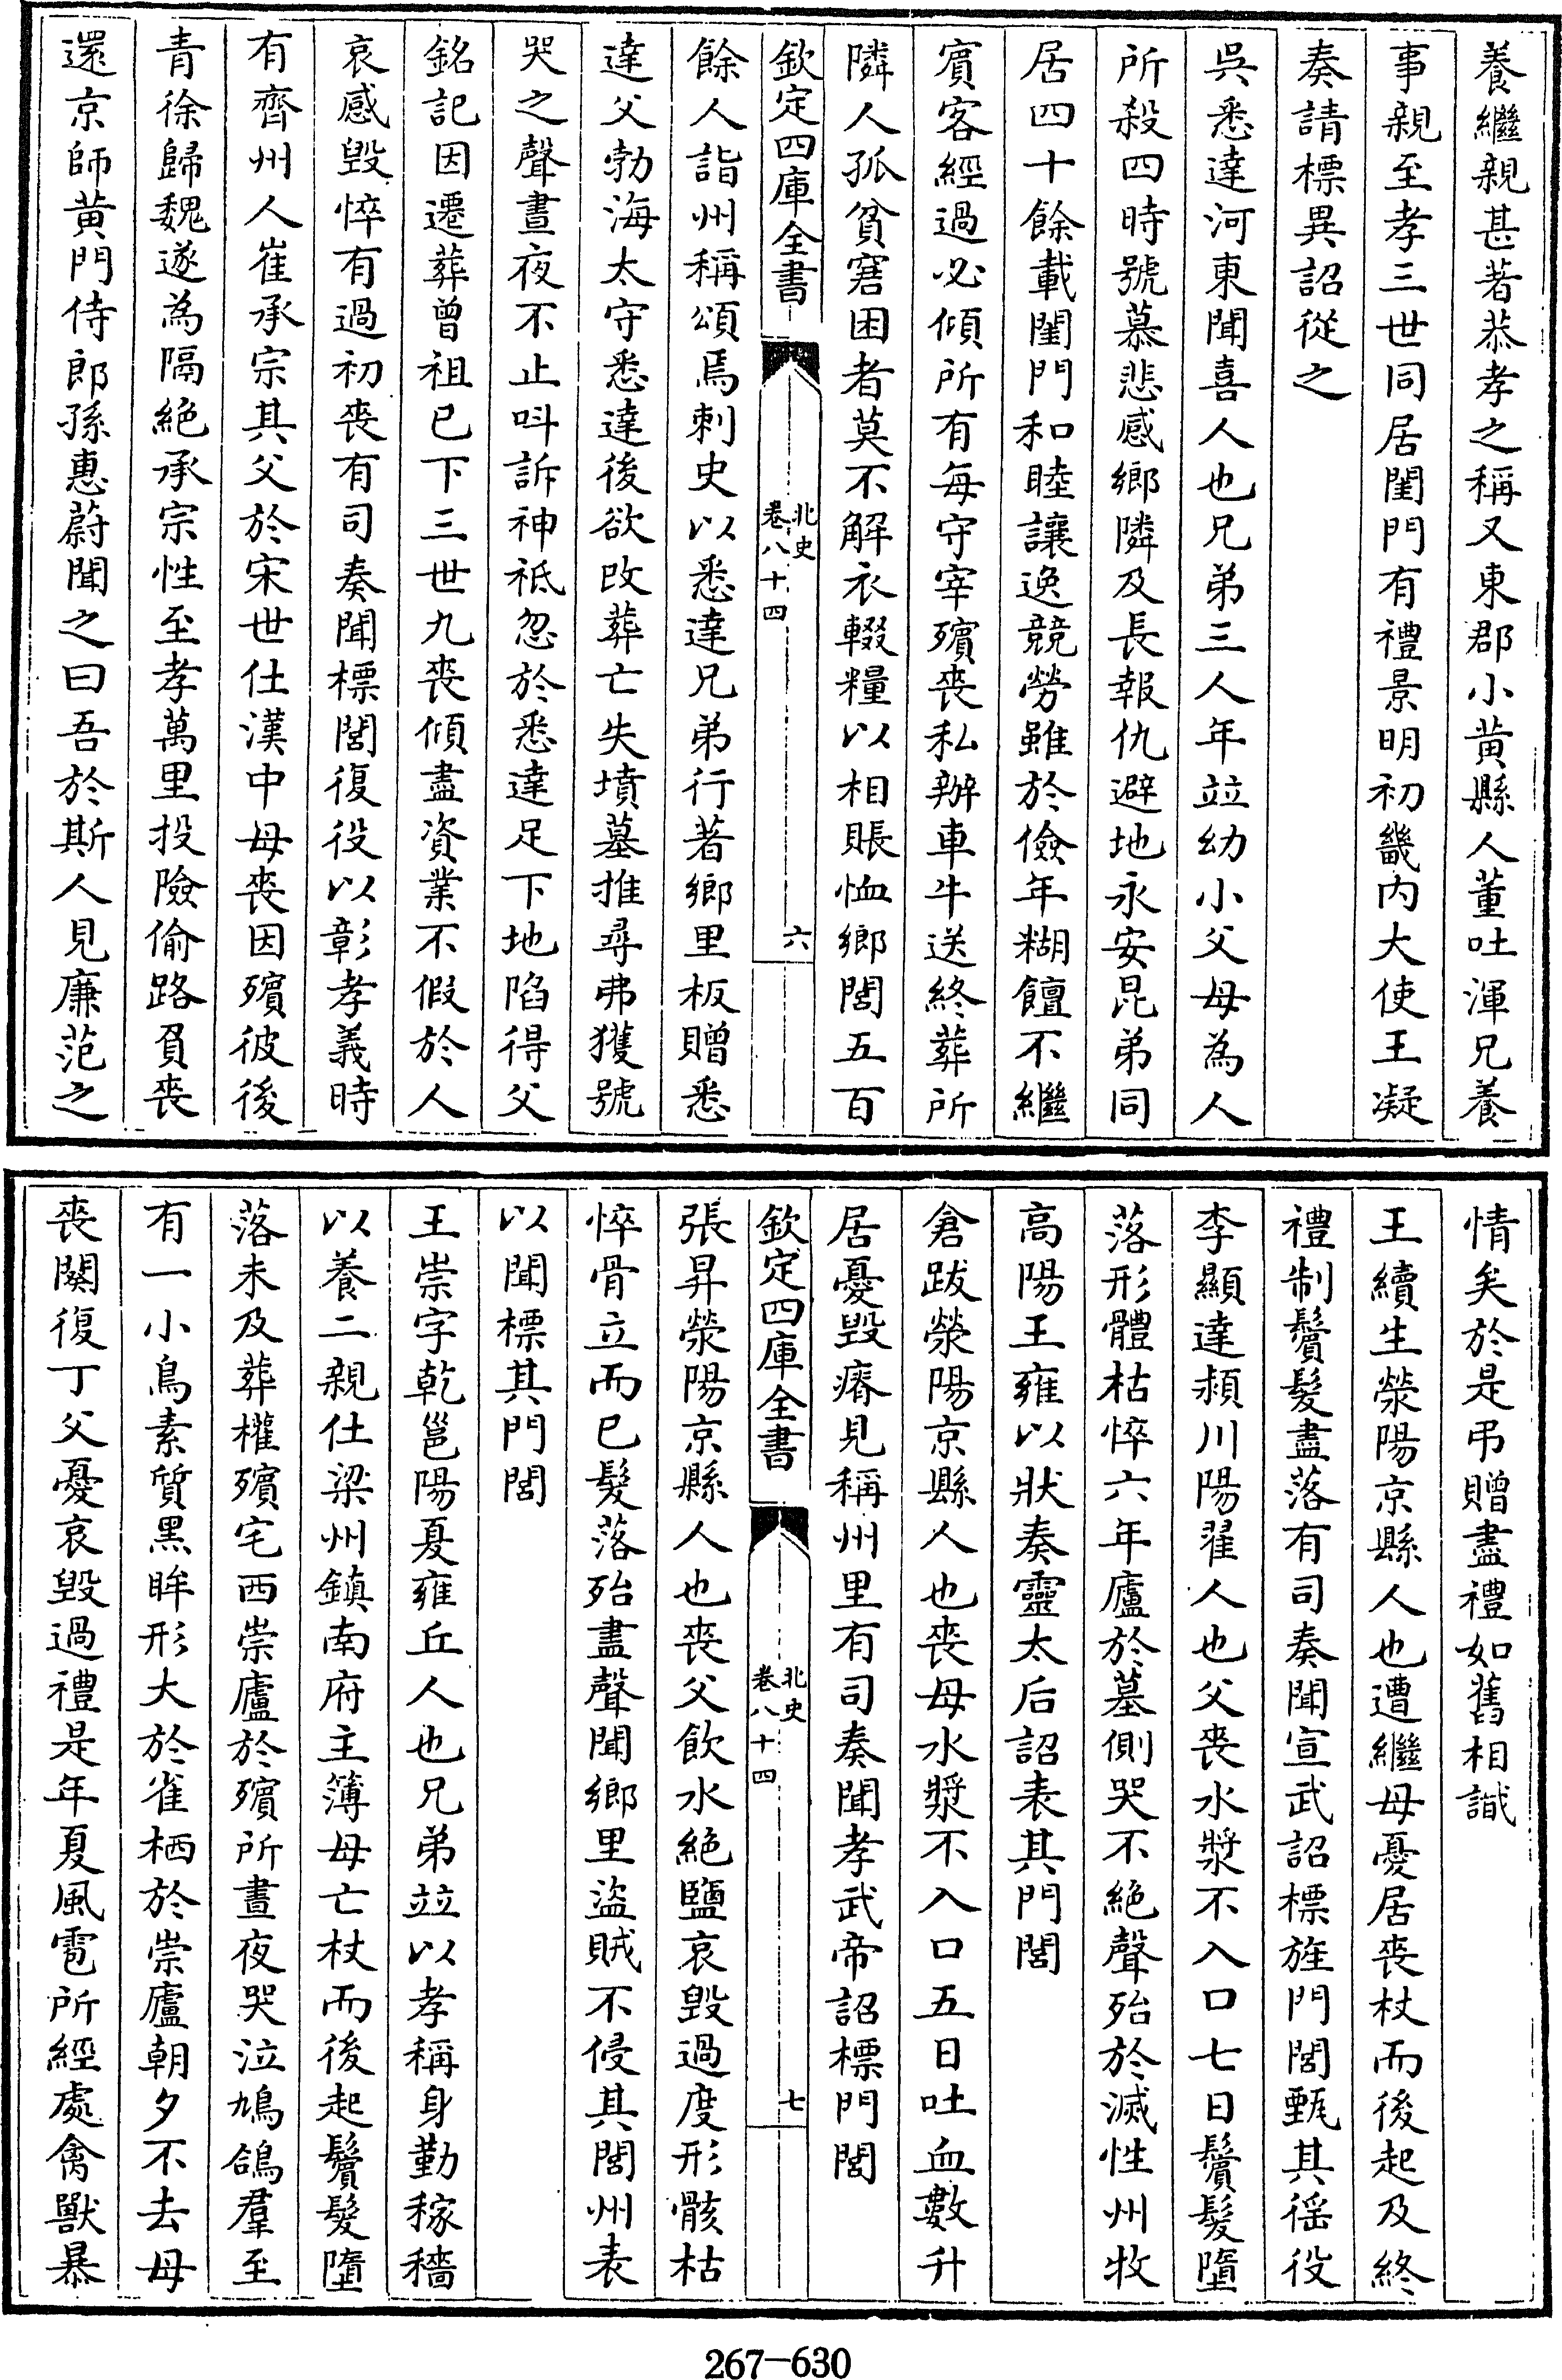 養繼親甚著恭孝之稱又東郡小黄縣人董吐渾兄養
事親至孝三世同居閨門有禮景明初畿内大使王凝
奏請標異詔從之
吳悉達河東聞喜人也兄弟三人年竝幼小父母為人
所殺四時號慕悲感鄉隣及長報仇避地永安昆弟同
居四十餘載閨門和睦讓逸競勞雖於儉年糊饘不繼
賔客經過必傾所有每守宰殯喪私辦車牛送終葬所
隣人孤貧窘困者莫不解衣輟糧以相賑恤鄉閭五百
欽定四庫全書
北史
卷八十四
六
餘人詣州稱頌焉刺史以悉達兄弟行著鄉里板贈悉
達父勃海太守悉達後欲改葬亡失墳墓推尋弗獲號
哭之聲晝夜不止呌訴神祗忽於悉達足下地陷得父
銘記因遷葬曾祖已下三世九喪傾盡資業不假於人
哀感毁悴有過初喪有司奏聞標閭復役以彰孝義時
有齊州人崔承宗其父於宋世仕漢中母喪因殯彼後
青徐歸魏遂為隔絶承宗性至孝萬里投險偷路負喪
還京師黄門侍郎孫惠蔚聞之曰吾於斯人見廉范之
情矣於是弔贈盡禮如舊相識
王續生滎陽京縣人也遭繼母憂居喪杖而後起及終
禮制鬢髮盡落有司奏聞宣武詔標旌門閭甄其徭役
李顯達潁川陽翟人也父喪水漿不入口七日鬢髮墮
落形體枯悴六年廬於墓側哭不絶聲殆於滅性州牧
高陽王雍以狀奏靈太后詔表其門閭
倉跋滎陽京縣人也喪母水漿不入口五日吐血數升
居憂毁瘠見稱州里有司奏聞孝武帝詔標門閭
欽定四庫全書
北史
卷八十四
七
張昇滎陽京縣人也喪父飲水絶鹽哀毁過度形骸枯
悴骨立而已髮落殆盡聲聞鄉里盜賊不侵其閭州表
以聞標其門閭
王崇字乾邕陽夏雍丘人也兄弟竝以孝稱身勤稼穡
以養二親仕梁州鎮南府主簿母亡杖而後起鬢髮墮
落未及葬權殯宅西崇廬於殯所晝夜哭泣鳩鴿羣至
有一小鳥素質黑眸形大於雀栖於崇廬朝夕不去母
喪闋復丁父憂哀毁過禮是年夏風雹所經處禽獸暴
267-630